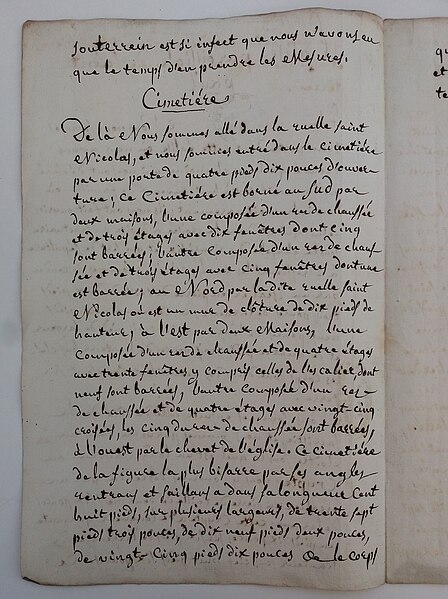 souterrein est si infect que nous n'avons eu
que le temps d'en prendre les Mesures.
Cimetiére
De là Nous sommes allé dans la ruelle saint
Nicolas, et nous sommes entré dans le cimetiére
par une porte de quatre pieds dix pouces d'ouver
ture; ce Cimetiére est borné au sud par
deux maisons, l'une composée d'un rez de chaussée
et de trois étages avec dix fenêtres dont cinq
sont barrées; l'autre composée d'un rez de chaus
sée et de trois étages avec cinq fenêtres dont une
est barrée; au Nord par la dite ruelle saint
Nicolas où est un mur de clôture de dix pieds de
hauteur; à l'est par deux Maisons, l'une
composée d'un rez de chaussée et de quatre étages
avec trente fenêtres y compris celles de l'escalier, dont
neuf sont barrées, l'autre composée d'un rez-
de chaussée et de quatre étages avec vingt-cinq
croisées, les cinq du rez de chaussée sont barrées,
à l'ouest par le chevet de l'église. Ce cimetiére
de la figure la plus bisarre par ses angles
rentrans et saillans a dans sa longueur Cent
huit pieds, sur plusieurs largeurs, de trente sept
pieds trois pouces, de dix neuf pieds deux pouces,
de vingt-cinq pieds dix pouces de le corps
qu
et
te